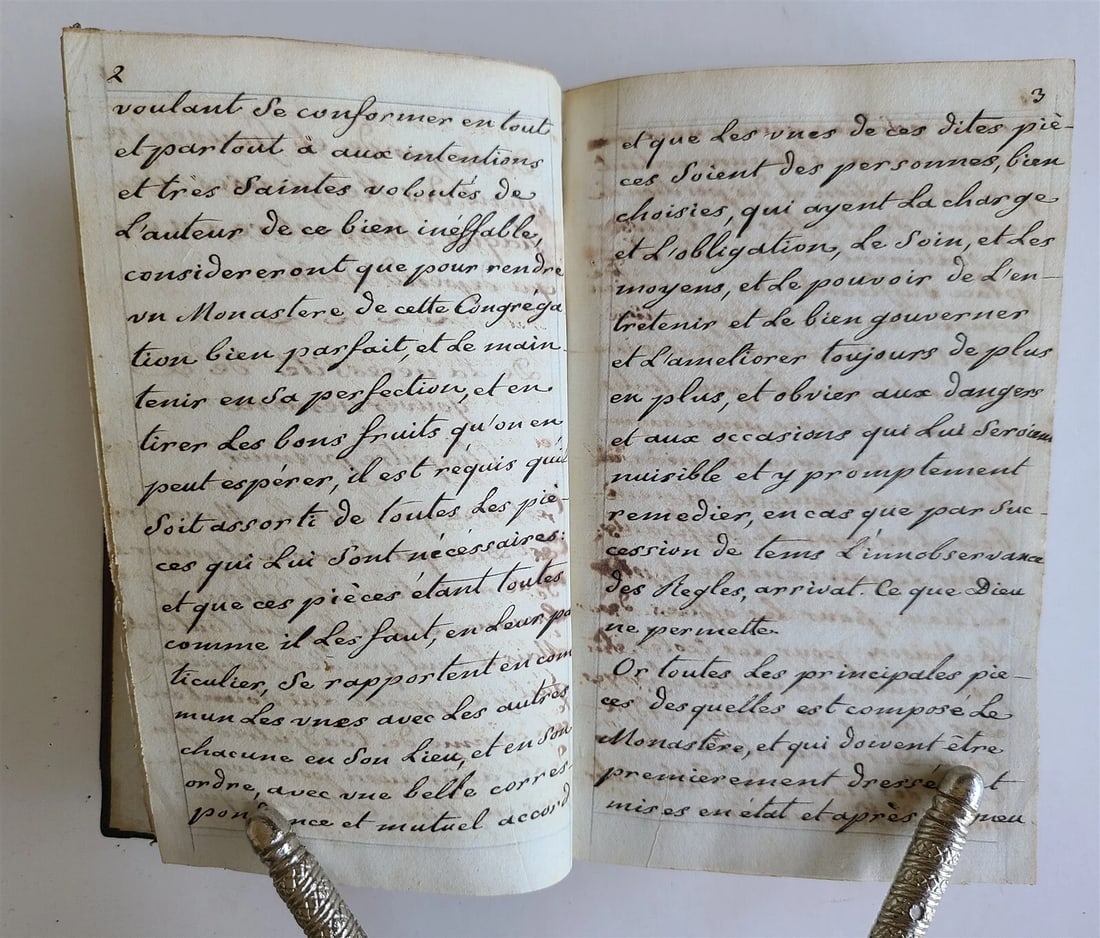 2
voulant Se conformer en tout
et partout à aux intentions
et très Saintes volontés de
L'auteur de ce bien inéffable,
considereront que pour rendre
vn Monastere de cette Congréga
tion bien parfait, et Le main-
tenir en Sa perfection, et en
tirer Les bons fruits qu'on en
peut espérer, il est réquis qu'il
Soit assorti de toutes Les piè-
ces qui Lui Sont nécéssaires:
et que ces pièces étant toutes
comme il Les faut, en Leur pa
ticulier, Se rapportent en com
mun Les vnes avec Les autres
chacune en Son Lieu, et en Son
ordre, avec vne belle corres
et mutuel accord
3
et que Les vnes de ces dites piè-
ces Soient des personnes, bien
choisies, qui ayent La charge
et L'obligation, Le Soin, et Les
moyens, et Le pouvoir de L'en-
tretenir et Le bien gouverner
et L'ameliorer toujours de plus
en plus, et obvier aux dangers
et aux occasions qui Lui Seroient
nuisible et y promptement
remedier, en cas que par Suc-
cession de tems L'innobservance
des Regles, arrivat. Ce que Dieu
ne permette.
Or toutes Les principales piè-
ces desquelles est composé Le
Monastère, et qui doivent être
premierement
mises en état et après